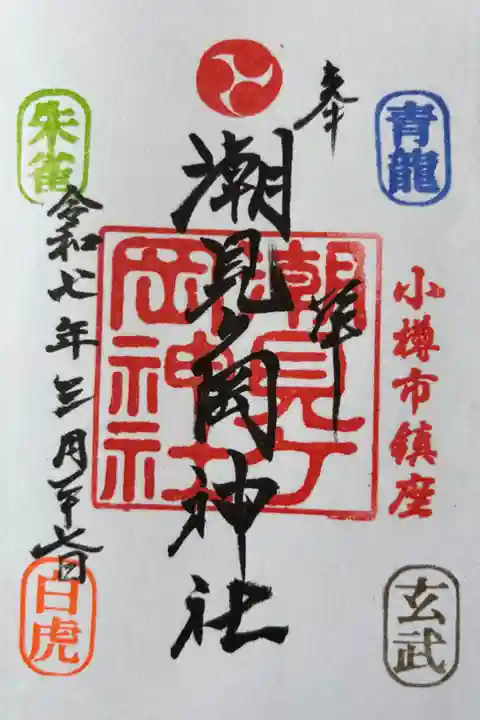 青龍
小樽市鎮座
玄武
奉拝
潮見ヶ岡神社
潮見ヶ
岡神社
朱雀
令和七年三月 七日
白虎